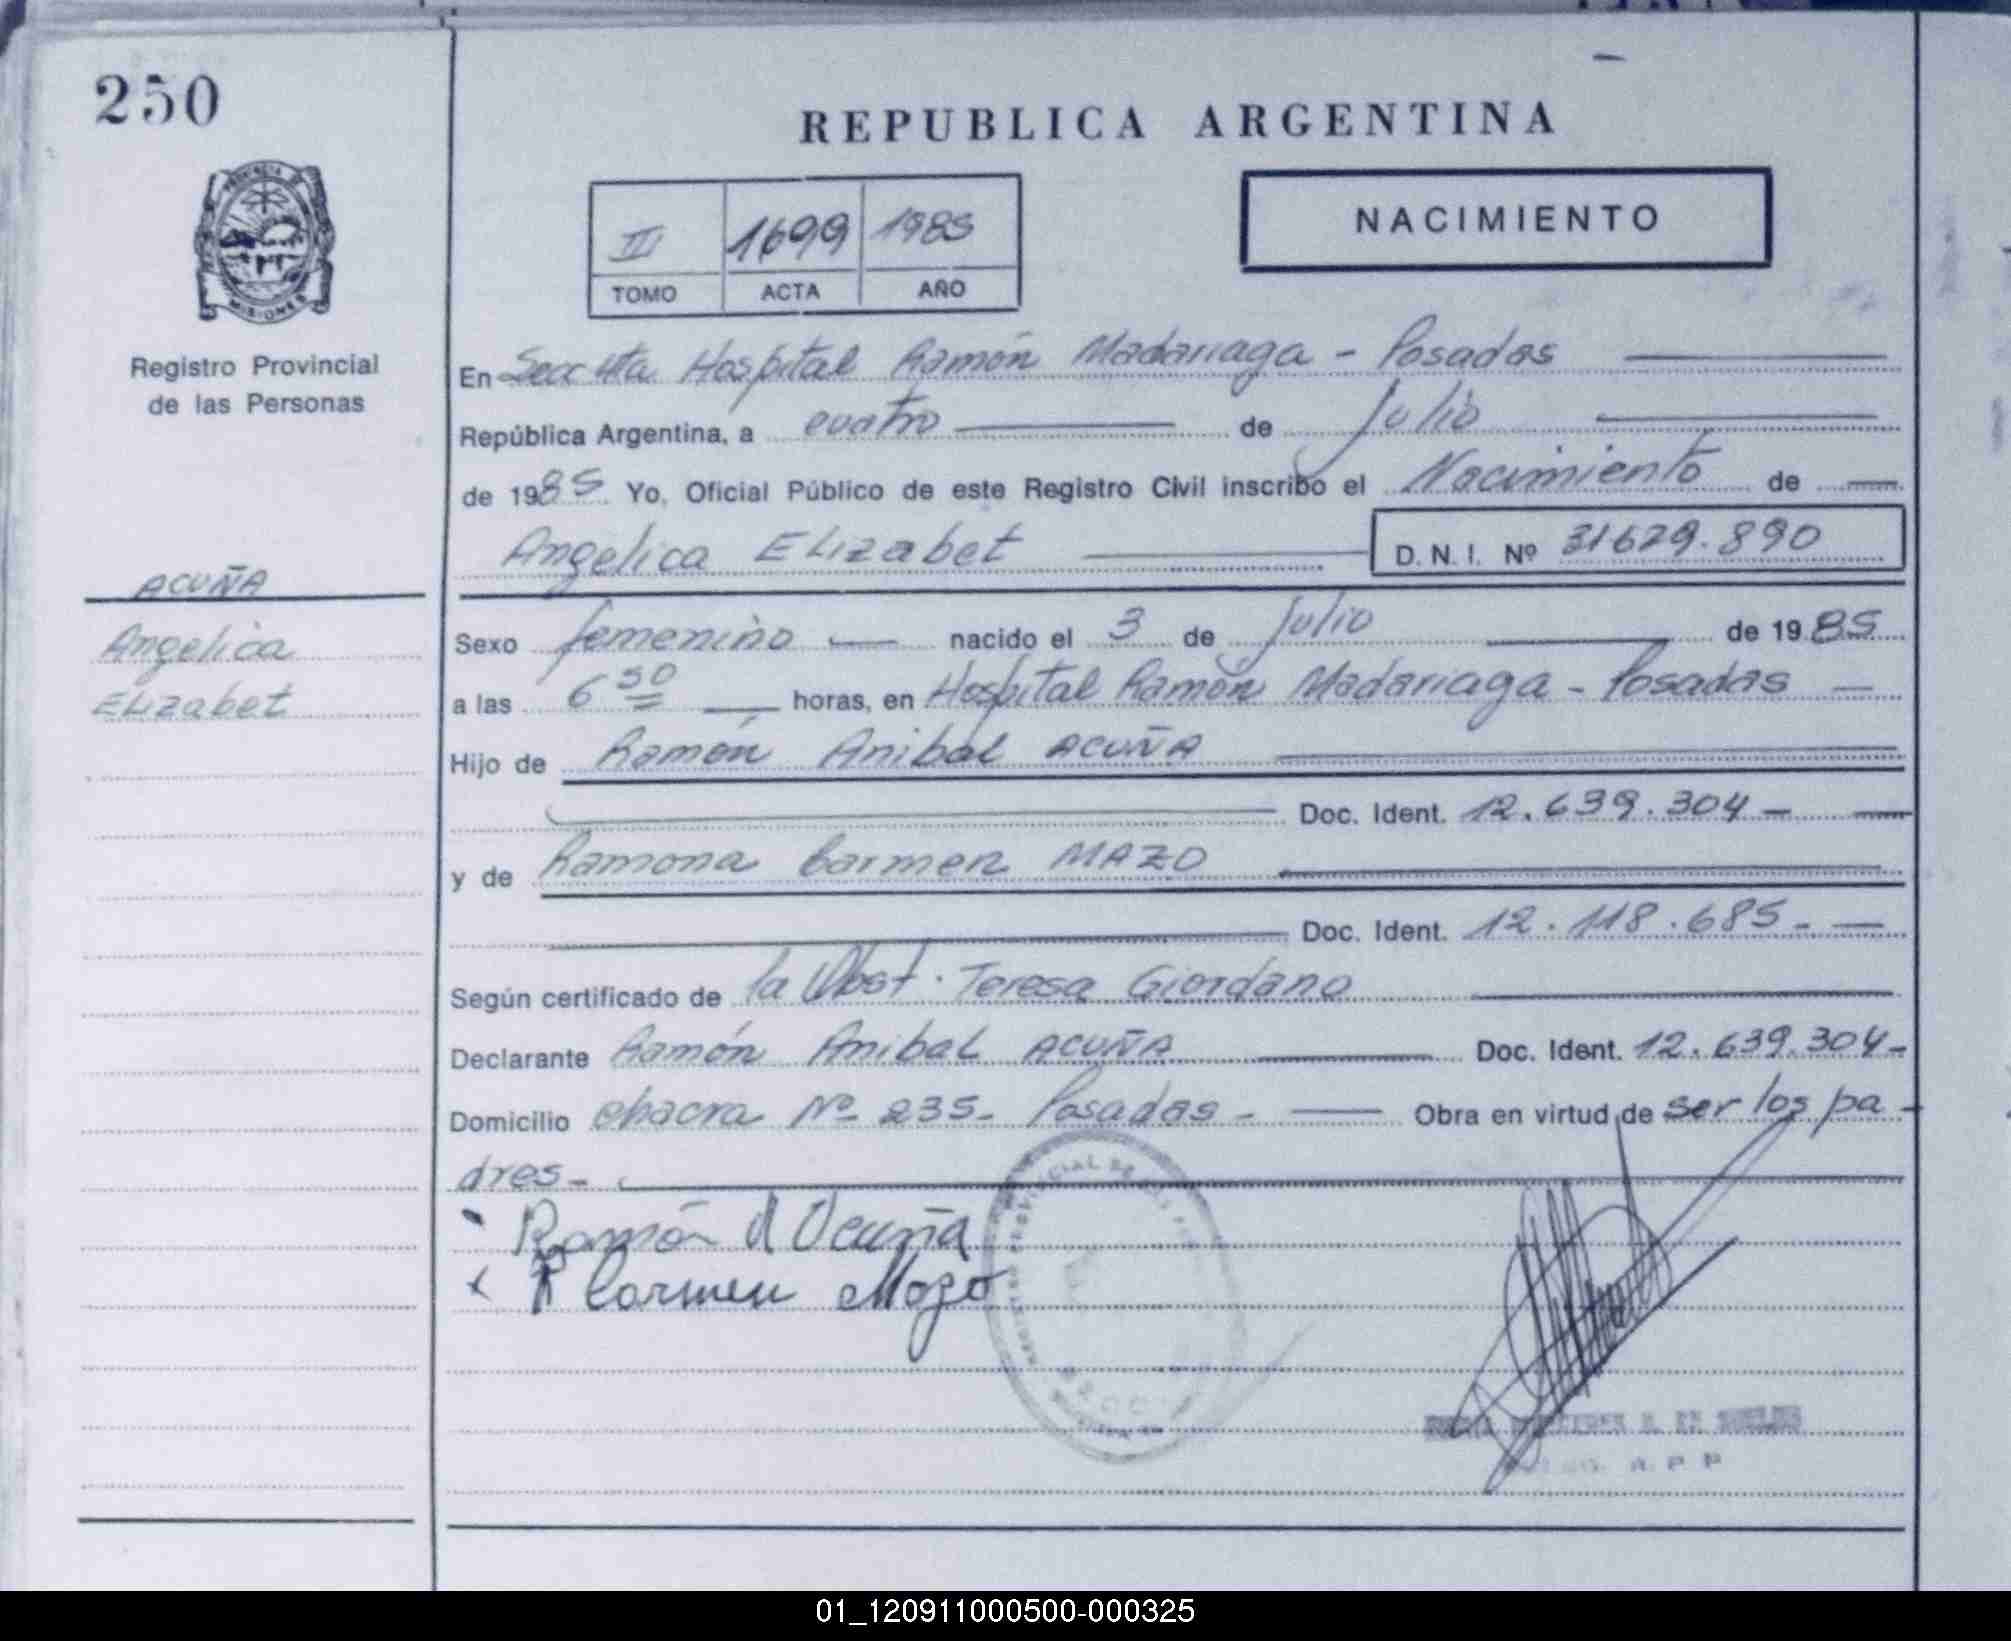 250
REPUBLICA ARGENTINA
PROVINCIA DE
MISIONES
Registro Provincial
de las Personas
III 1699 1985
TOMO ACTA AÑO
NACIMIENTO
En Secc 4ta Hospital Ramón Madariaga - Posadas
República Argentina, a cuatro de Julio
de 1985 Yo, Oficial Público de este Registro Civil inscribo el Nacimiento de
Angelica ELizabet D.N.I. Nº 31629.890
ACUÑA
Angelica
ELizabet
Sexo femenino nacido el 3 de Julio de 1985
a las 6 30 horas, en Hospital Ramón Madariaga - Posadas
Hijo de Ramón Anibal ACUÑA
Doc. Ident. 12.639.304 -
y de Ramona Carmen MAZO
Doc. Ident. 12.118.685 -
Según certificado de la Obst. Teresa Giordano
Declarante Ramón Anibal ACUÑA Doc. Ident. 12.639.304 -
Domicilio chacra Nº 235 - Posadas - Obra en virtud de ser los pa -
dres -
Ramón A Acuña
R Carmen Mazo
01_120911000500-000325